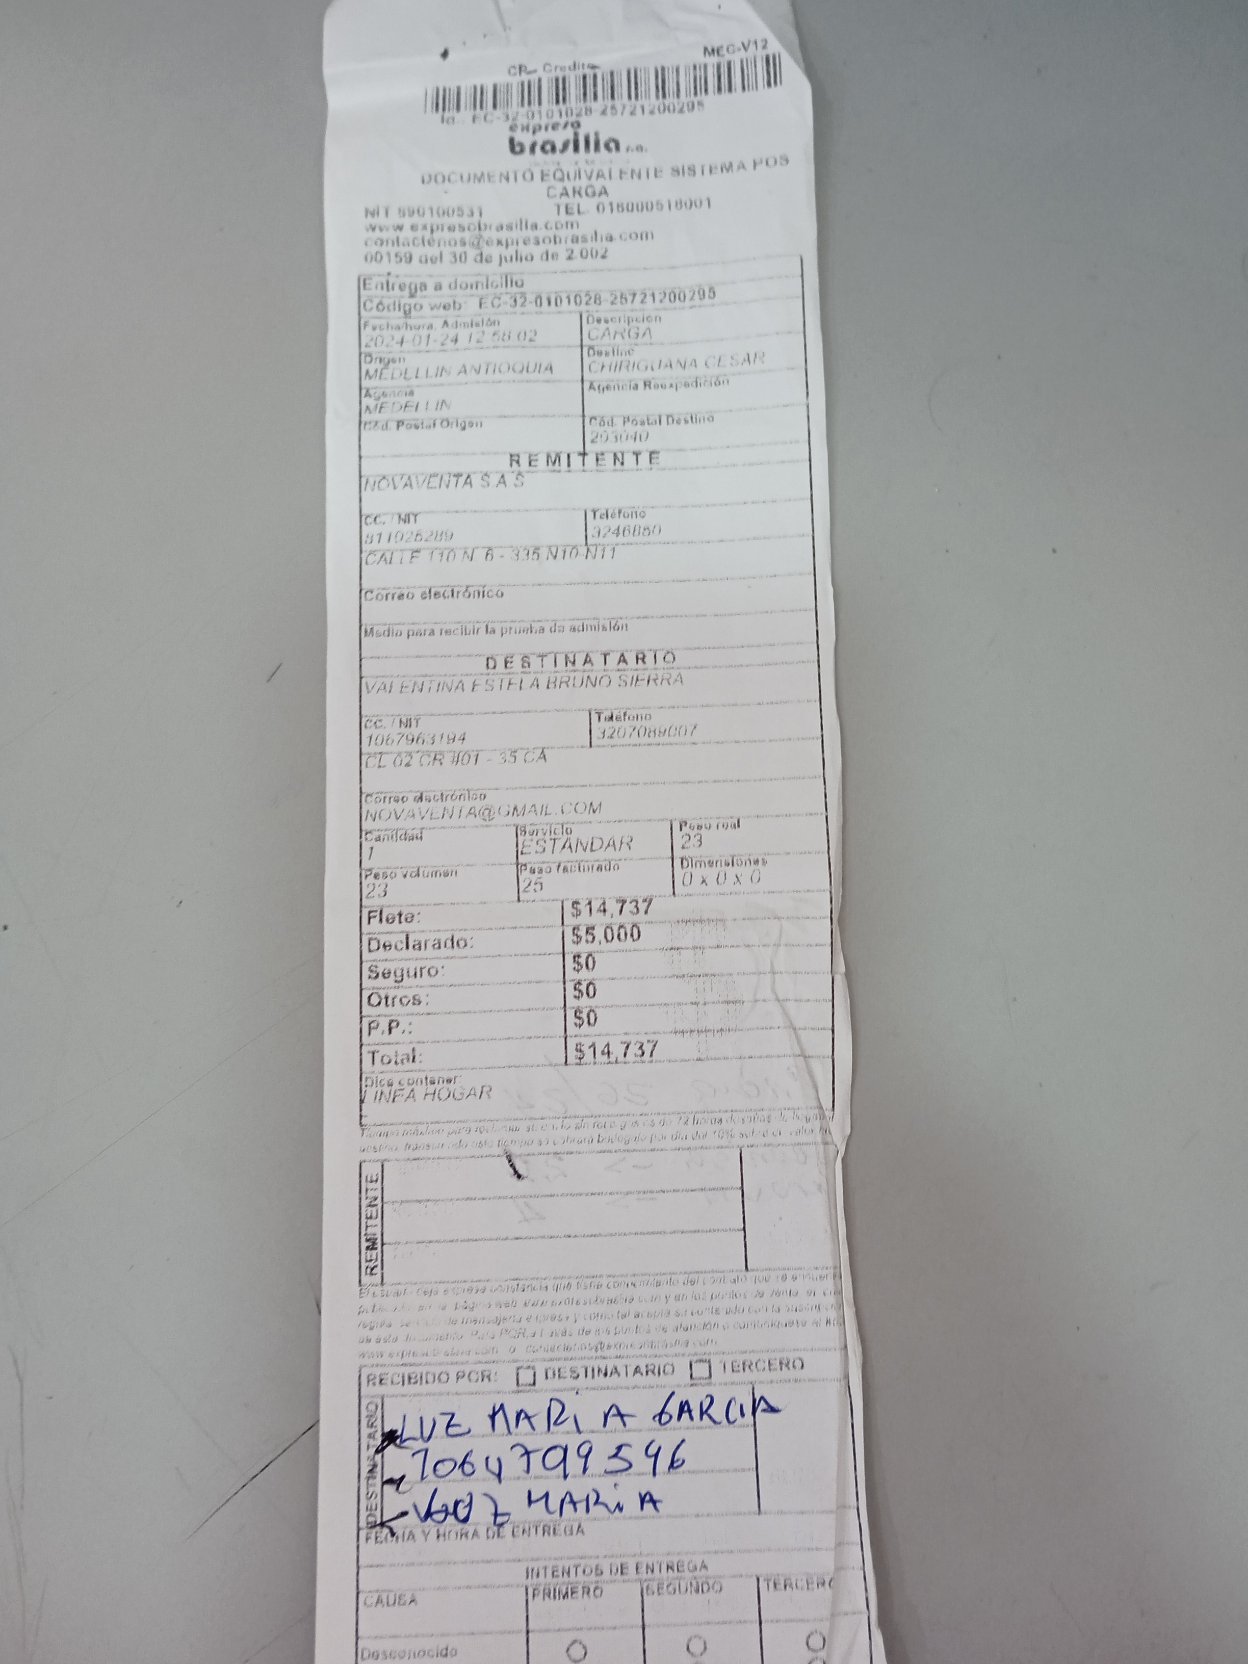 MEC-V12
CR- Credito
Id.: EC-32-0101028-25721200295
expreso
brasilia s.a.
DOCUMENTO EQUIVALENTE SISTEMA POS
CARGA
NIT 890100531 TEL. 018000518001
www.expresobrasilia.com
contactenos@expresobrasilia.com
00159 del 30 de julio de 2.002
Entrega a domicilio
Código web: EC-32-0101028-25721200295
Fecha/hora. Admisión Descripción
2024-01-24 12:58:02 CARGA
Origen Destino
MEDELLIN ANTIOQUIA CHIRIGUANA CESAR
Agencia Agencia Reexpedición
MEDELLIN
Cód. Postal Origen Cód. Postal Destino
203040
REMITENTE
NOVAVENTA S A S
CC. / NIT Teléfono
811025289 3246880
CALLE 110 N. 6 - 335 N10-N11
Correo electrónico
Medio para recibir la prueba de admisión
DESTINATARIO
VALENTINA ESTELA BRUNO SIERRA
CC. / NIT Teléfono
1067963194 3207089007
CL 02 CR #01 - 35 CA
Correo electrónico
NOVAVENTA@GMAIL.COM
Cantidad Servicio Peso real
1 ESTANDAR 23
Peso volumen Peso facturado Dimensiones
23 25 0 x 0 x 0
Flete: $14,737
Declarado: $5,000
Seguro: $0
Otros: $0
P.P.: $0
Total: $14,737
Dice contener:
LINEA HOGAR
REMITENTE
RECIBIDO POR: DESTINATARIO TERCERO
DESTINATARIO
LUZ MARiA GARCIA
1064799596
LUZ MARiA
FECHA Y HORA DE ENTREGA
INTENTOS DE ENTREGA
CAUSA PRIMERO SEGUNDO TERCERO
Desconocido